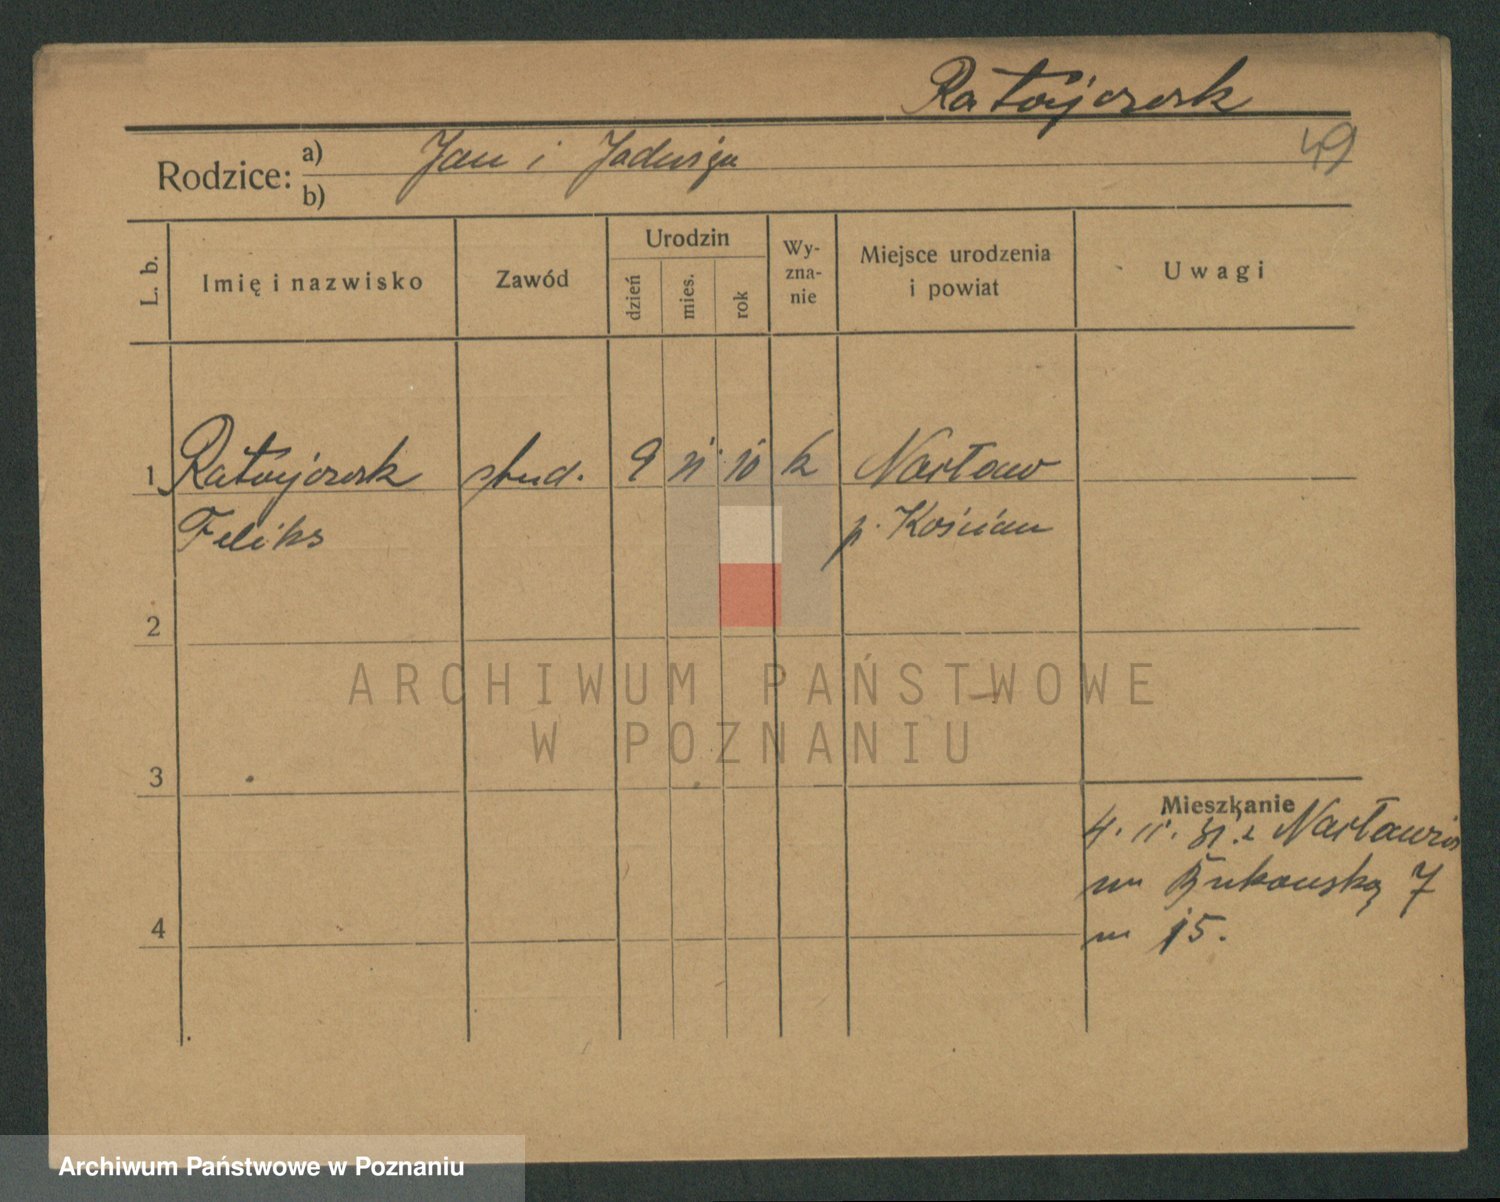 Ratajczak
49
Rodzice: a) Jan i Jadwiga
b)
L. b.
Imię i nazwisko
Zawód
Urodzin
dzień
mies.
rok
Wy-
zna-
nie
Miejsce urodzenia
i powiat
Uwagi
1 Ratajczak stud. 9 XI 10 k Nacław
Feliks p. Kościan
2
ARCHIWUM PAŃSTWOWE
W POZNANIU
3
Mieszkanie
4. 11. 31. z Nacławia
na Bukowską 7
m 15.
4
Archiwum Państwowe w Poznaniu